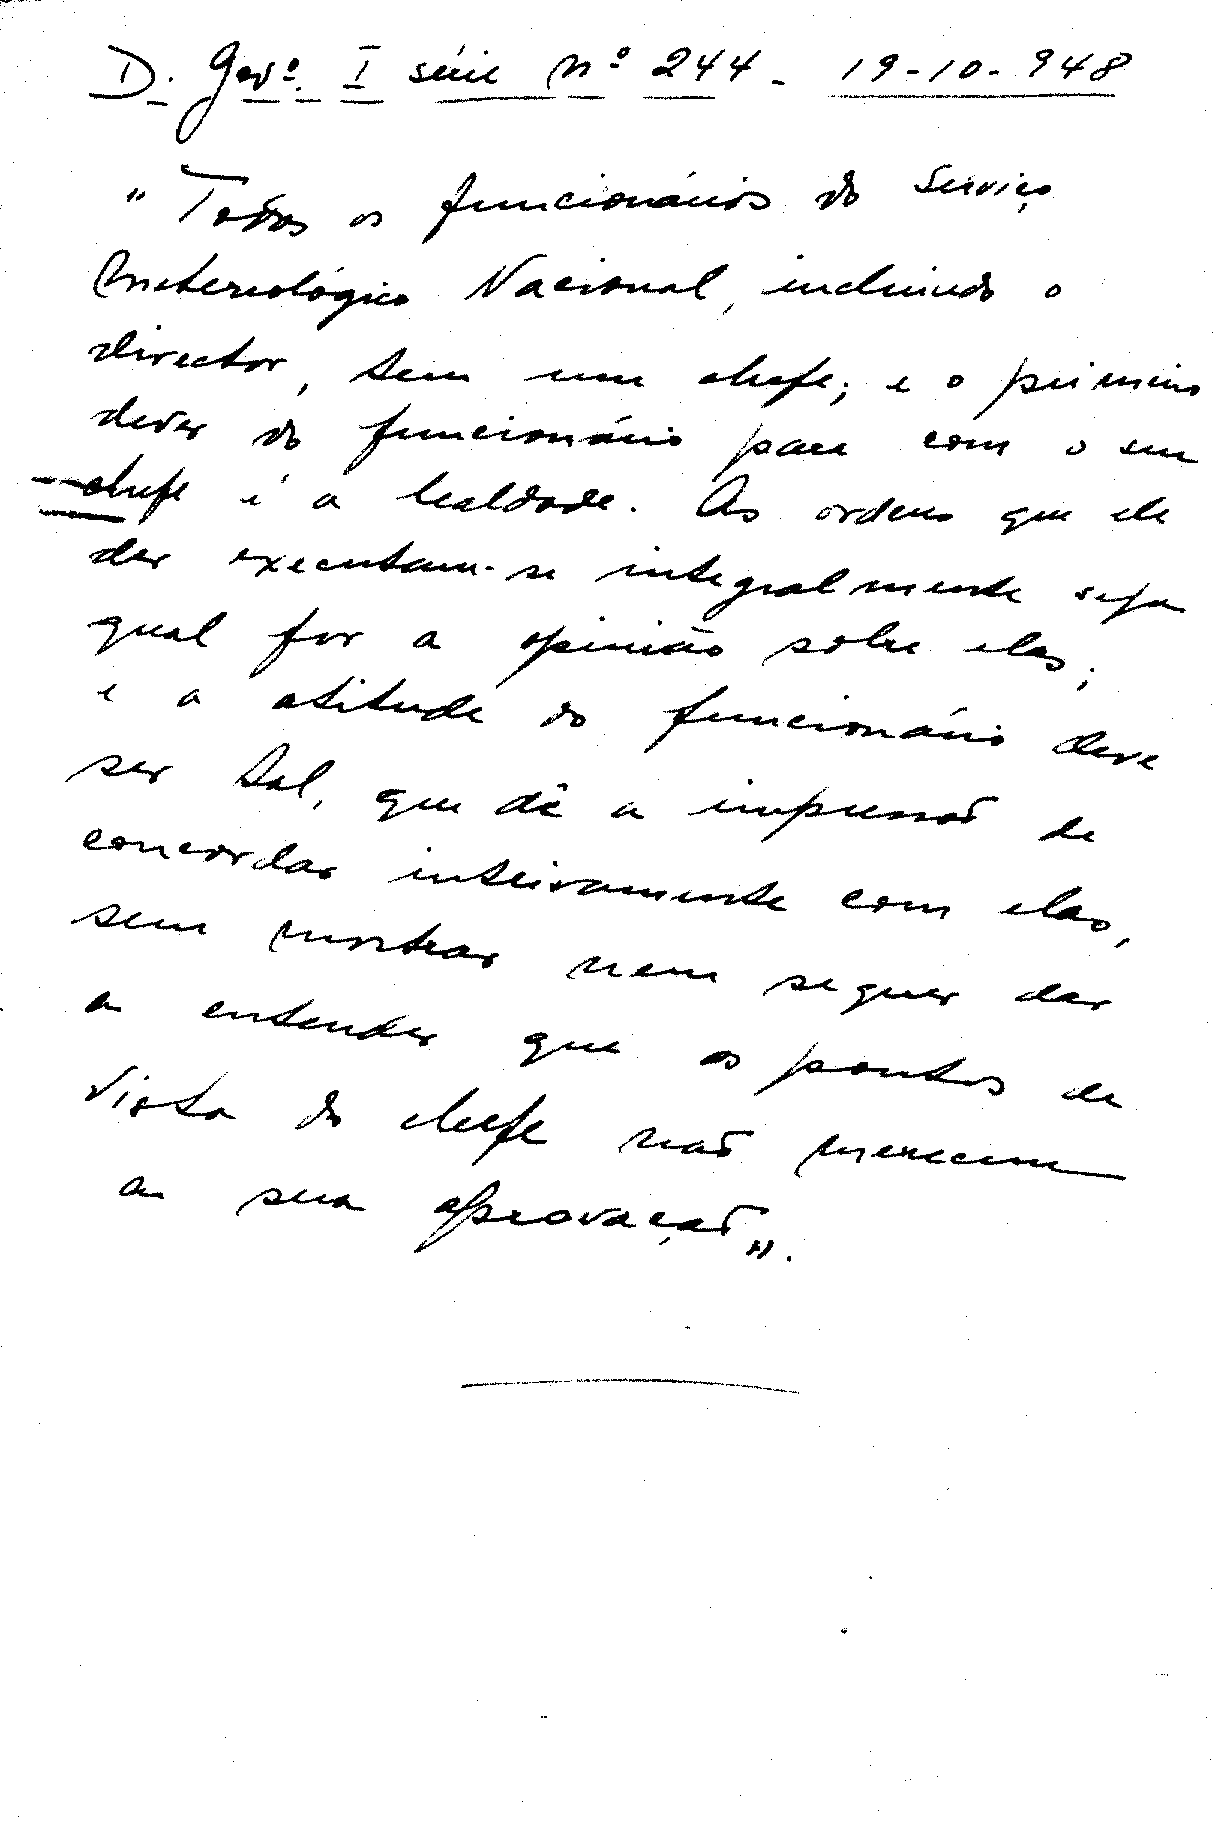 D. Gov.º. I série nº 244 - 19-10-948
"Todos os funcionários do Serviço
Metereológico Nacional, incluindo o
director, tem um chefe; e o primeiro
dever do funcionário para com o seu
chefe é a lealdade. As ordens que ele
der executam-se integralmente seja
qual for a opinião sobre elas;
e a atitude do funcionário deve
ser tal, que dê a impressão de
concordar inteiramente com elas,
sem mostrar nem sequer dar
a entender que os pontos de
vista do chefe não merecem
a sua aprovação".